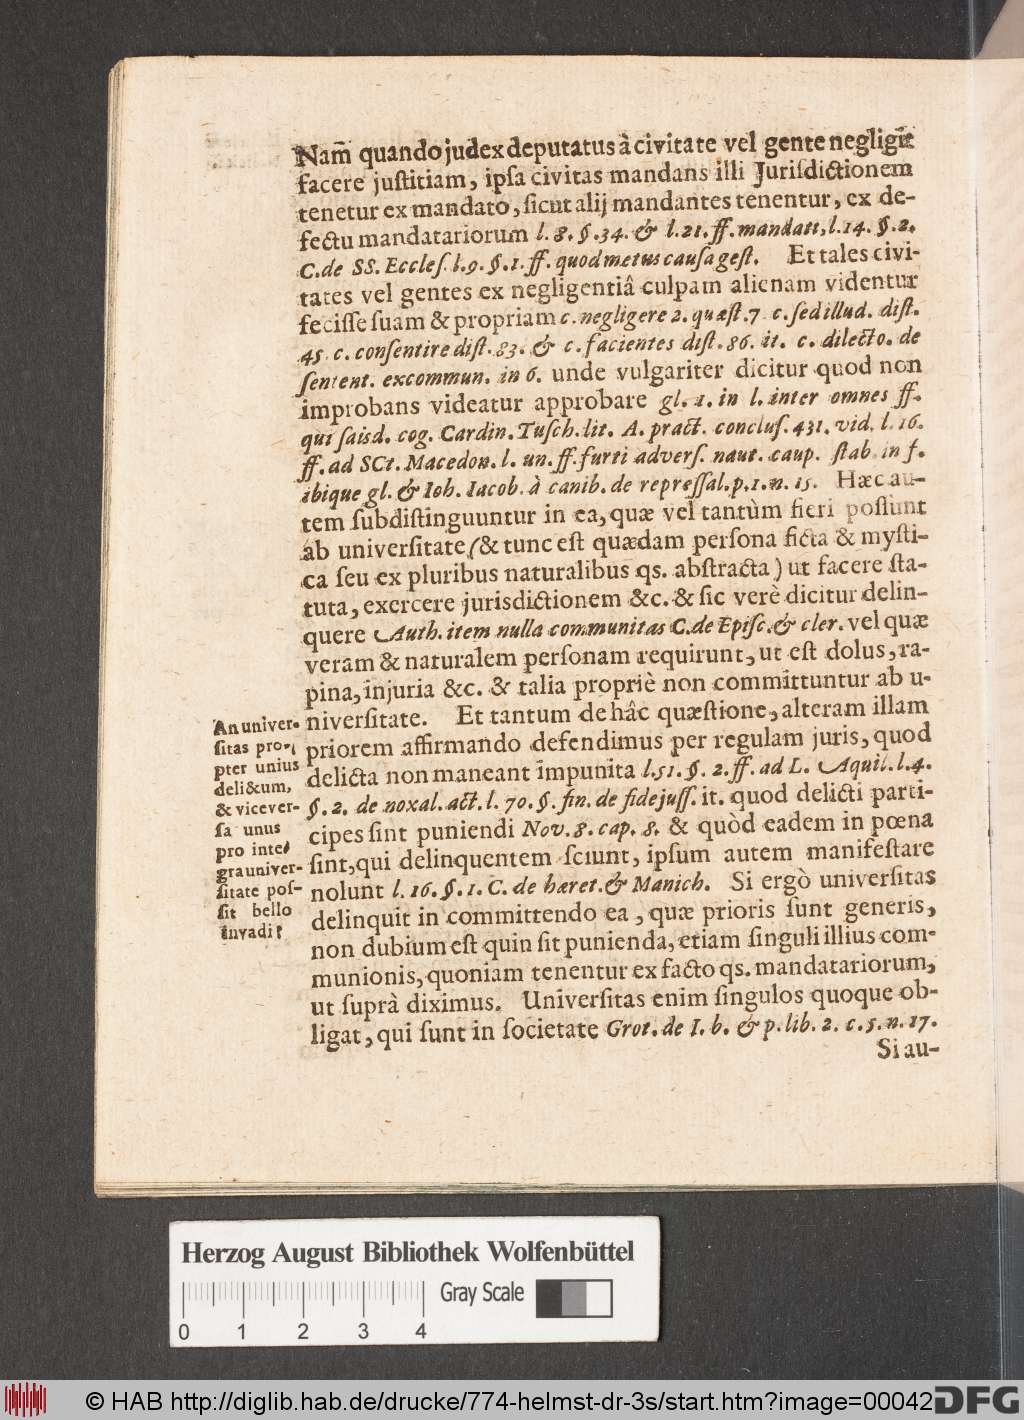 Nam̃ quando judex deputatus à civitate vel gente negligit
facere juſtitiam, ipſa civitas mandans illi Juriſdictionem
tenetur ex mandato, ſicut alij mandantes tenentur, ex de-
fectu mandatariorum l. 8. §. 34. & l. 21. ff. mandati, l. 14. §. 2.
C. de SS. Eccleſ. l. 9. §. 1. ff. quod metus cauſa geſt. Et tales civi-
tates vel gentes ex negligentiâ culpam alienam videntur
feciſſe ſuam & propriam c. negligere 2. quæſt. 7. c. ſed illud. diſt.
45. c. conſentire diſt. 83. & c. facientes diſt. 86. it. c. dilecto. de
ſentent. excommun. in 6. unde vulgariter dicitur quod non
improbans videatur approbare gl. 1. in l. inter omnes ff.
qui ſaisd. cog. Cardin. Tuſch. lit. A. pract. concluſ. 431. vid. l. 16.
ff. ad SCt. Macedon. l. un. ff. furti adverſ. naut. caup. ſtab. in f.
ibique gl. & Ioh. Iacob. à canib. de repreſſal. p. 1. n. 15. Hæc au-
tem ſubdiſtinguuntur in ea, quæ vel tantùm fieri poſſunt
ab univerſitate (& tunc eſt quædam perſona ficta & myſti-
ca ſeu ex pluribus naturalibus qs. abſtracta) ut facere ſta-
tuta, exercere jurisdictionem &c. & ſic verè dicitur delin-
quere Auth. item nulla communitas C. de Epiſc. & cler. vel quæ
veram & naturalem perſonam requirunt, ut eſt dolus, ra-
pina, injuria &c. & talia propriè non committuntur ab u-
niverſitate. Et tantum de hâc quæſtione, alteram illam
priorem affirmando defendimus per regulam juris, quod
delicta non maneant impunita l. 51. §. 2. ff. ad L. Aquil. l. 4.
§. 2. de noxal. act. l. 70. §. fin. de fidejuſſ. it. quod delicti parti-
cipes ſint puniendi Nov. 8. cap. 8. & quòd eadem in pœna
ſint, qui delinquentem ſciunt, ipſum autem manifeſtare
nolunt l. 16. §. 1. C. de hæret. & Manich. Si ergò univerſitas
delinquit in committendo ea, quæ prioris ſunt generis,
non dubium eſt quin ſit punienda, etiam ſinguli illius com-
munionis, quoniam tenentur ex facto qs. mandatariorum,
ut ſuprà diximus. Univerſitas enim ſingulos quoque ob-
ligat, qui ſunt in ſocietate Grot. de I. b. & p. lib. 2. c. 5. n. 17.
Si au-
An univer-
ſitas pro-
pter unius
delictum,
& vicever-
ſa unus
pro inte-
gra univer-
ſitate poſ-
ſit bello
invadi?
Herzog August Bibliothek Wolfenbüttel
Gray Scale
0 1 2 3 4
© HAB http://diglib.hab.de/drucke/774-helmst-dr-3s/start.htm?image=00042
DFG